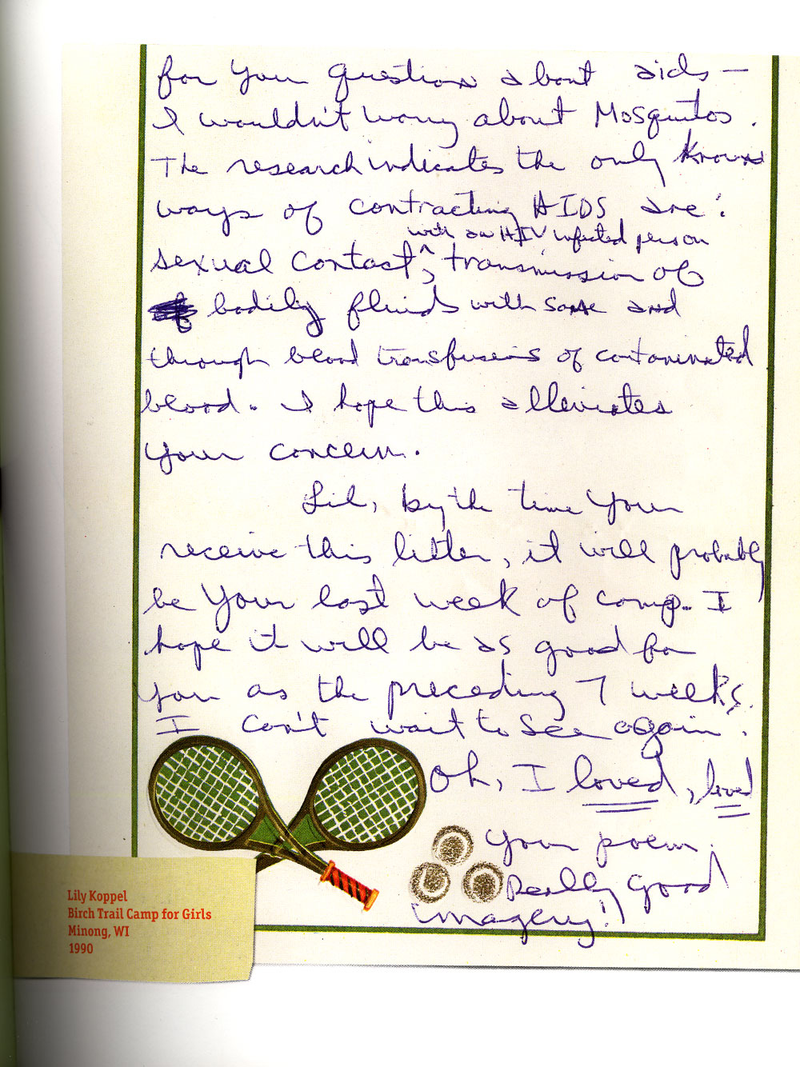 for your question about aids —
I wouldn't worry about Mosquitos.
The research indicates the only known
ways of contracting HIDS are:
with an HIV infected person
sexual contact^, transmission of
bodily fluids with same and
through blood transfusions of contaminated
blood. I hope this alleviates
your concern.
Lil, by the time your
receive this letter, it will probably
be your last week of camp. I
hope it will be as good for
you as the preceding 7 weeks.
I can't wait to see again.
Oh, I loved, loved
your poem.
Really good
imagery!!
Lily Koppel
Birch Trail Camp for Girls
Minong, WI
1990